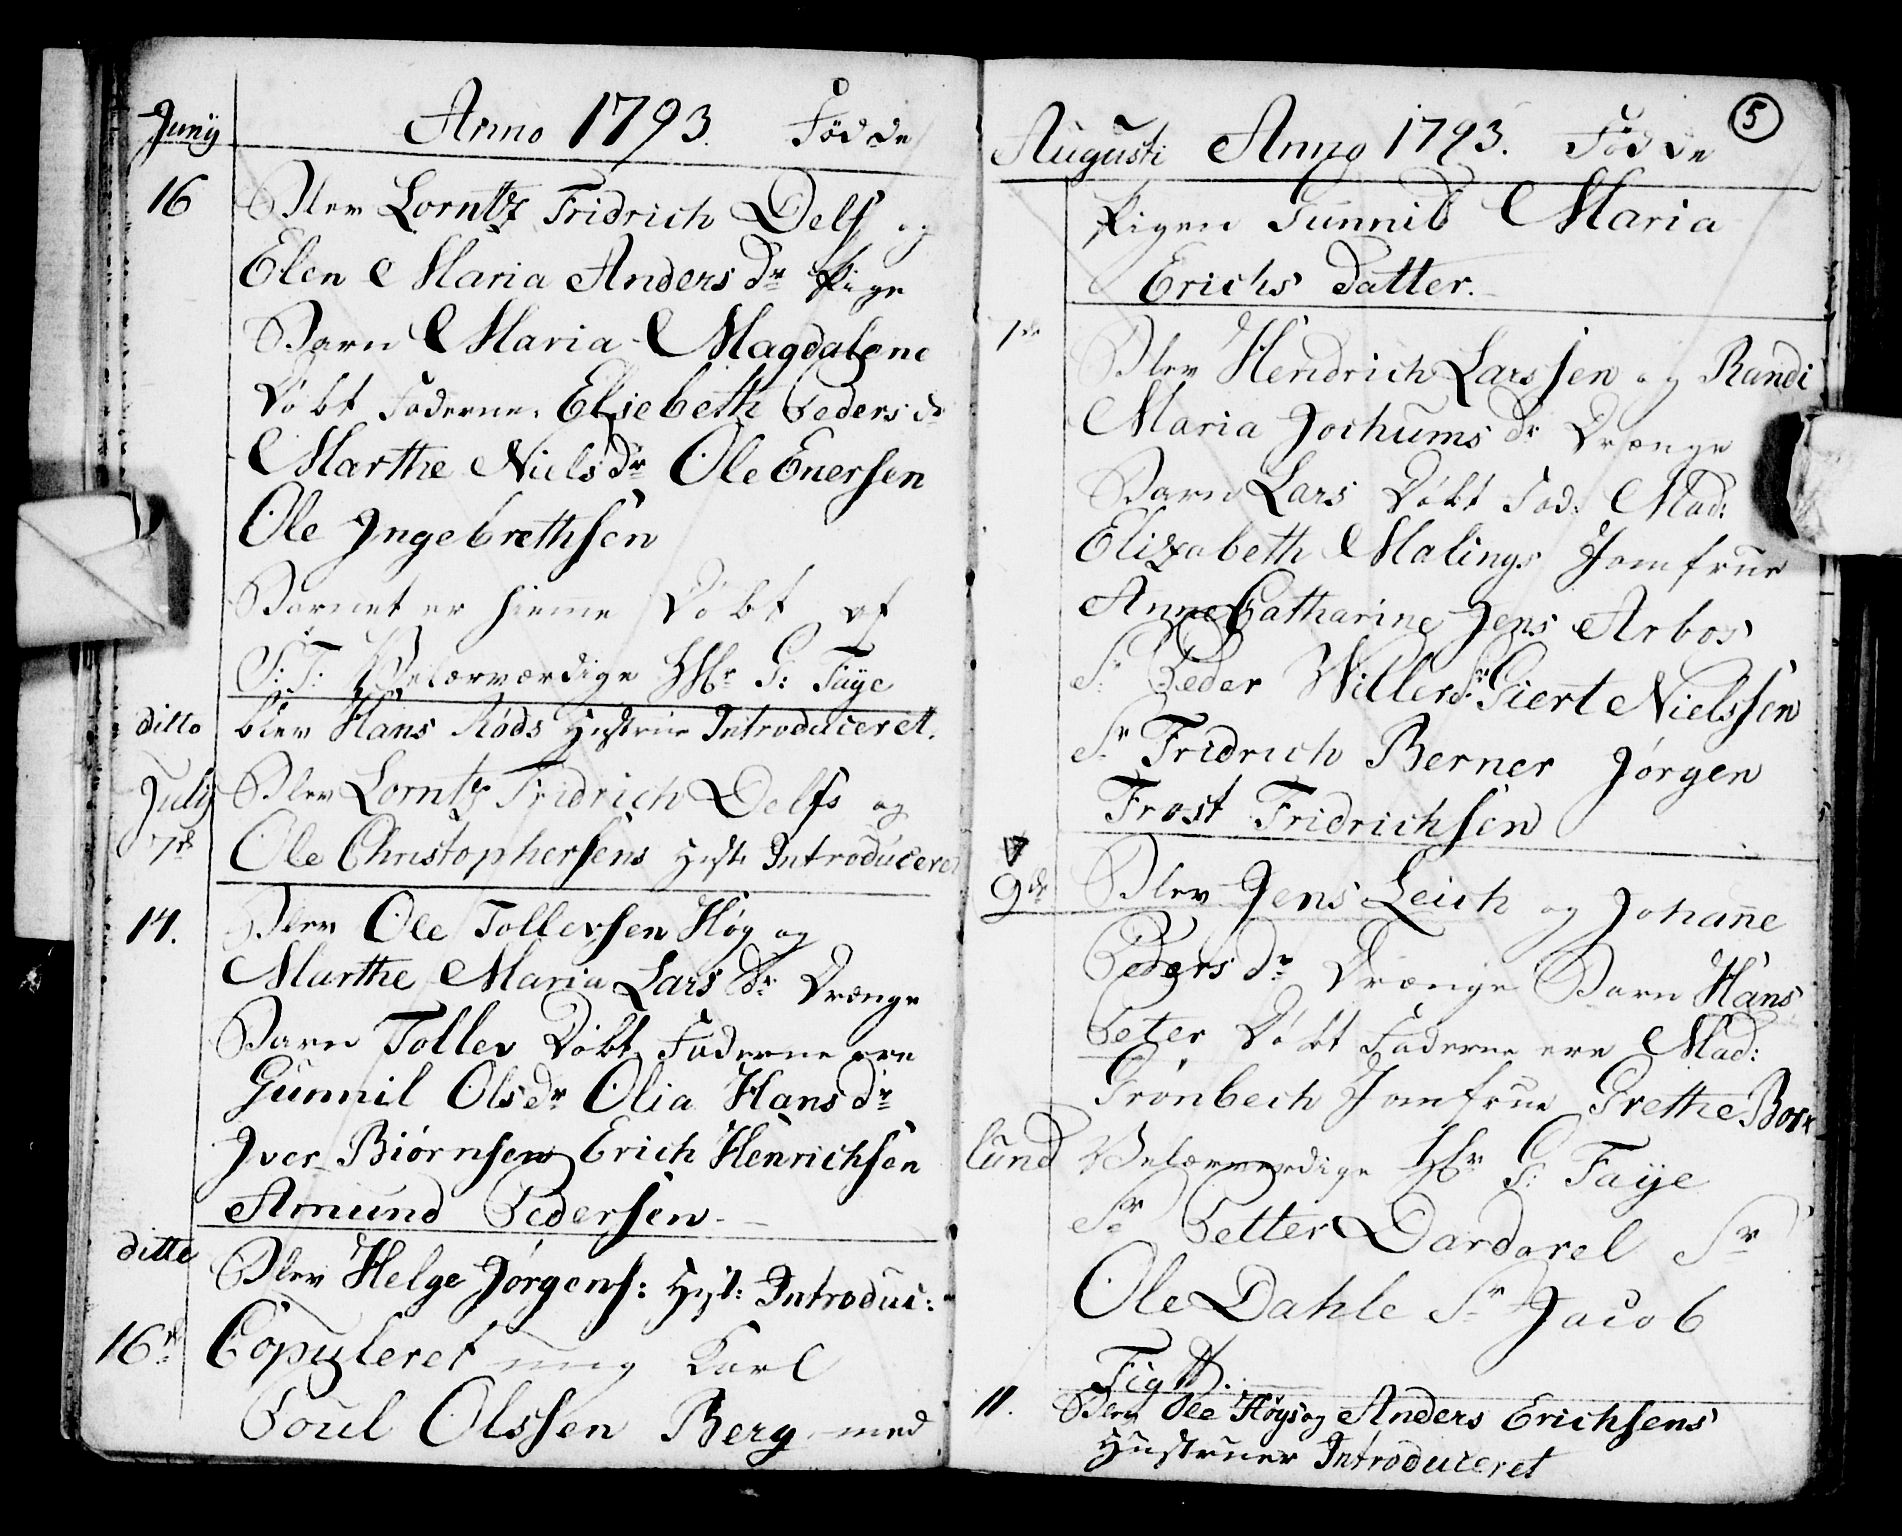 Junÿ Anno 1793. Födde
16 Blev Lorntz Fridrich Delfs og
Elen Maria Andersdr Pige
Barn Maria Magdalene
Döbt Faderne. Elsebeth Pedersdr
Marthe Nielsdr Ole Enersen
Ole Ingebrethsen
Barnet er hieme Döbt af
S: T: Velærværdige Hr G: Faÿe
ditto blev Hans Röds Hustrue Introduceret.
Julÿ Blev Lorntz Fridrich Delfs og
7de Ole Christophersens Hust Introducere
14. Blev Ole Tollevsen Höy og
Marthe Maria Larsdr Drænge
Barn Tollev Döbt Faderne ere
Gunnil Olsdr Olia Hansdr
Iver Biörnsen Erich Henrichsen
Amund Pedersen.
ditto Blev Helge Jörgens: Hust: Introduc:
16de Copuleret ung Karl
Poul Olssen Berg med
5
Augusti Anno 1793. Födde
Pigen Gunnild Maria
Erichs Datter.
1de Blev Hendrich Larssen og Randi
Maria Jochums dr Drænge
Barn Lars Döbt Fad: Mad:
Elizabeth Malings Jomfrue
Anne Catharine Jens Arbos
Sr Peder Willers Sr Giert Nielssen
Sr Fridrich Berner Jörgen
Frost Fridrichsen
9de Blev Jens Leich og Johane
Pedersdr Drænge Barn Hans
Peter Döbt Faderne ere Mad:
Grönbech Jomfrue Grethe Bork
lund Velærværdige Hr G: Faÿe
Sr Petter Dardarel Sr
Ole Dahle Sr Jacob
Figtt.
11. Blev Ole Höys og Anders Erichsens
Hustruer Introduceret